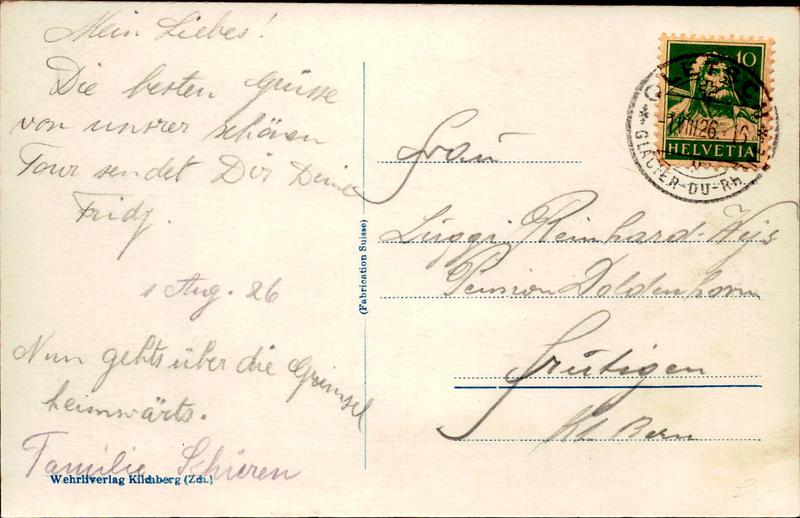 Mein Liebes!
Die besten Grüsse
von unsrer schönen
Tour sendet Dir Deine
Fridy.
1 Aug. 26
Nun gehts über die Grimsel
heimwärts.
Familie Schieren
Wehrliverlag Kilchberg (Zch.)
(Fabrication Suisse)
10
HELVETIA
GLETSCH
1.VIII.26.-16
GLACIER-DU-RH.
Frau
Luggi Reinhard-Wys
Pension Doldenhorn
Frutigen
Kt. Bern